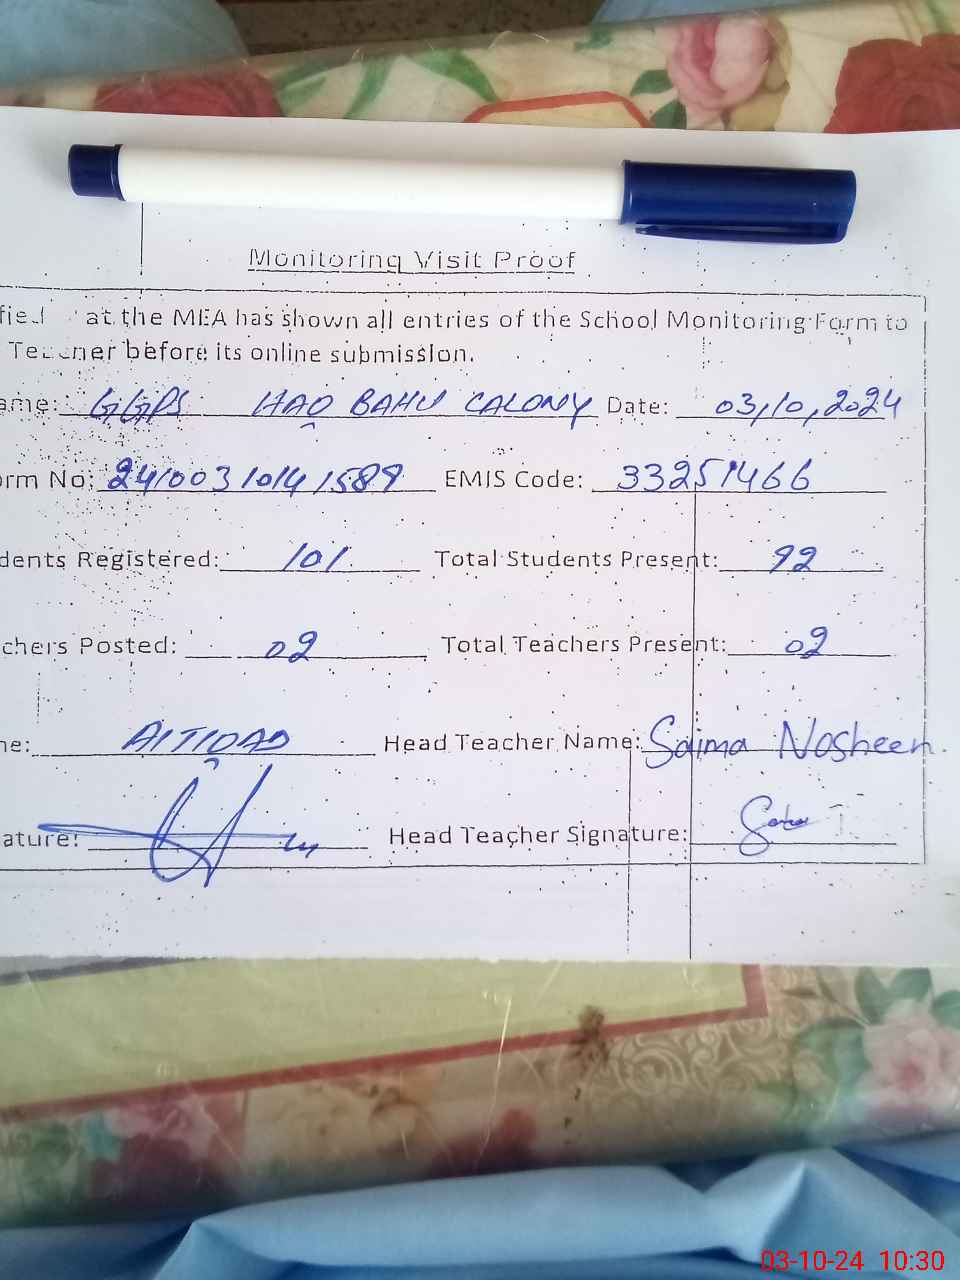 Monitoring Visit Proof
at the MEA has shown all entries of the School Monitoring Form to
before its online submission.
ame: GGPS HAQ BAHU CALONY Date: 03,10,2024
orm No: 24100310141589 EMIS Code: 33251466
dents Registered: 101 Total Students Present: 92
chers Posted: 02 Total Teachers Present: 02
me: Head Teacher Name: Saima Nosheen.
ature: Head Teacher Signature:
03-10-24 10:30